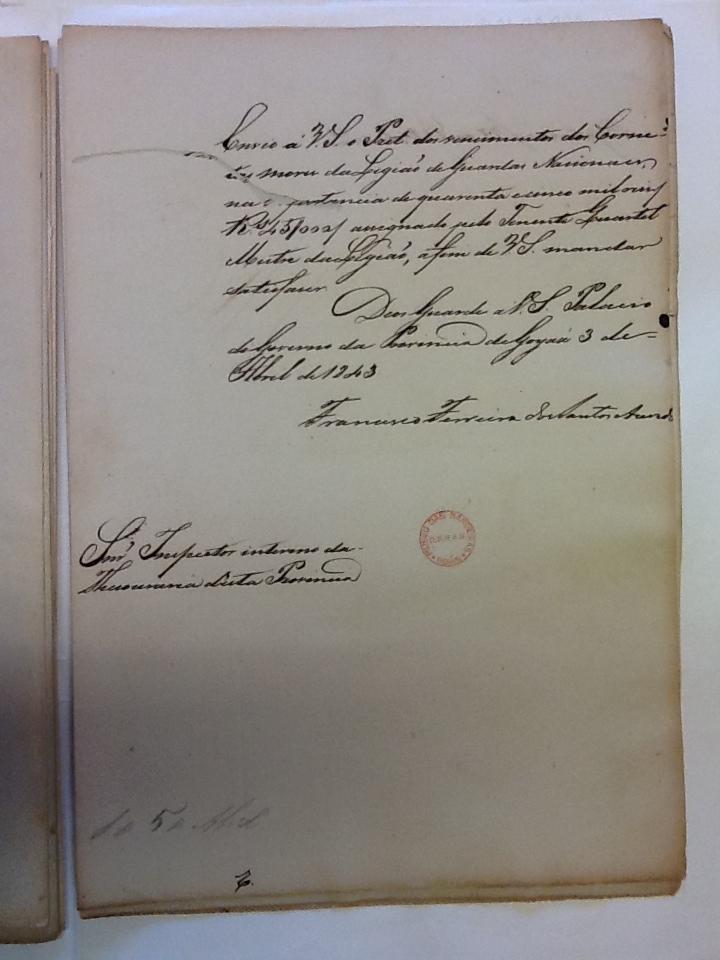 Envio á V.S. o Pret dos vencimentos dos Corne-
tas mores da Legião de Guardas Nacionaes,
na importancia de quarenta e cinco mil reis/
Rs 45/000/ assignado pelo Tenente Quartel
Mestre da Legião, afim de V.S. mandar
satisfazer.
Deos Guarde a V.S. Palacio
do Governo da Provincia de Goyaz 3 de
Abril de 1843
Francisco Ferreira dos Santos Azevedo
Snr. Inspector interino da
Thesouraria desta Provincia
de Abril